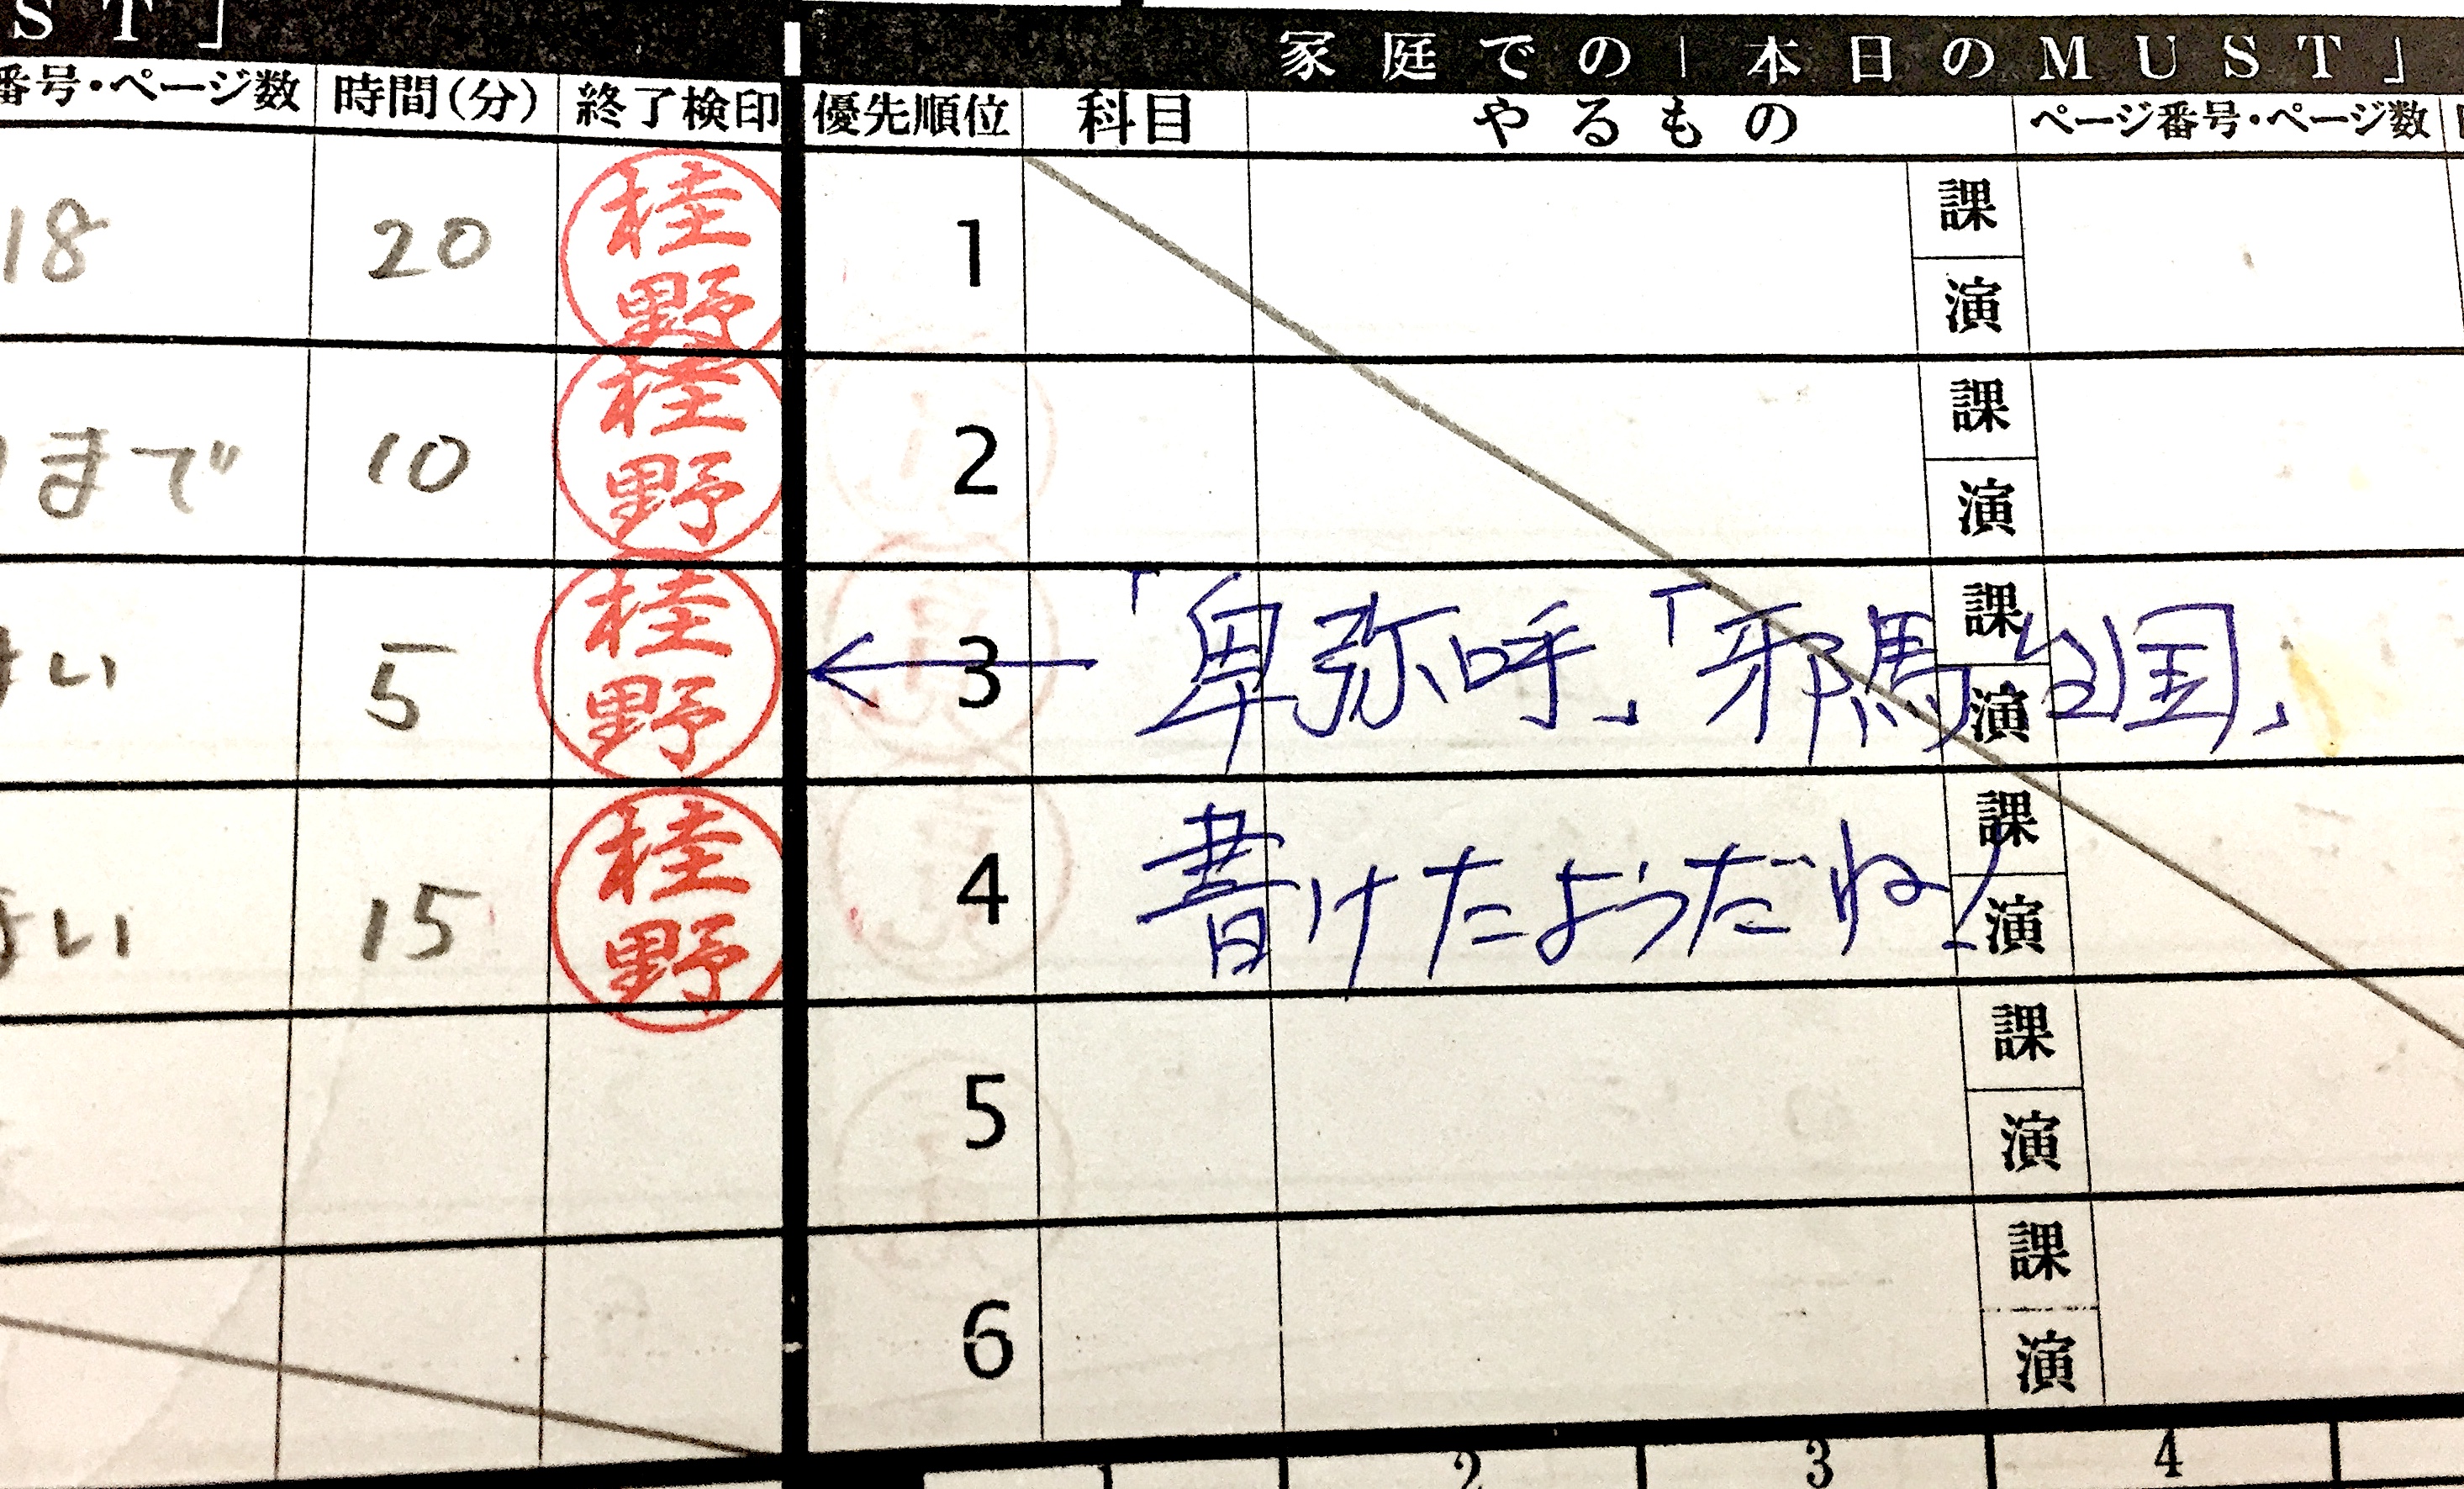 ST」 家庭での「本日のMUST」
番号・ページ数 時間(分) 終了検印 優先順位 科目 やるもの ページ番号・ページ数
18 20 桂野 1 課 演
まで 10 桂野 2 課 演
い 5 桂野 3 ←「卑弥呼」「邪馬台国」 課 演
い 15 桂野 4 書けたようだね! 課 演
5 課 演
6 課 演
2 3 4